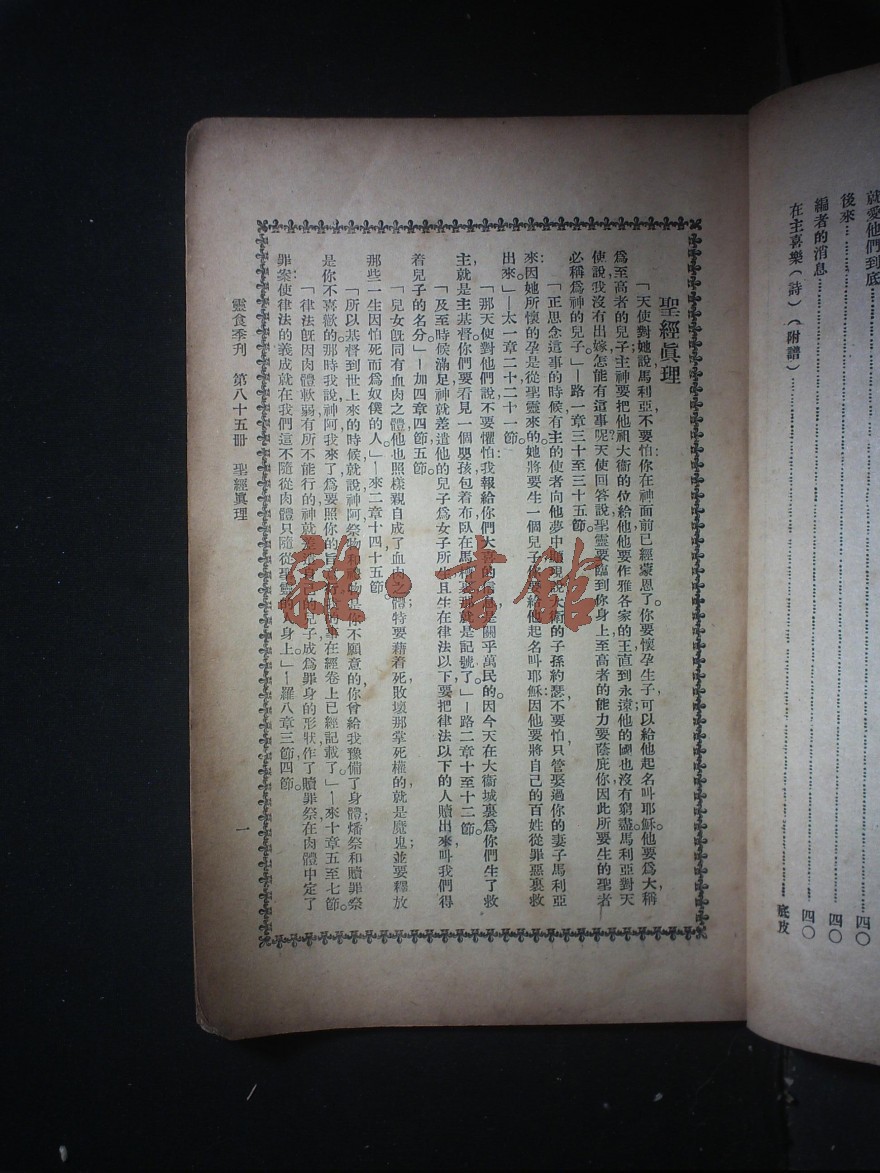 就愛他們到底……四〇
後來……四〇
編者的消息……四〇
在主喜樂(詩)(附譜)……底皮
聖經眞理
「天使對她說馬利亞不要怕你在神面前已經蒙恩了。你要懷孕生子可以給他起名叫耶穌他要爲大稱
爲至高者的兒子主神要把他祖大衞的位給他他要作雅各家的王直到永遠他的國也沒有窮盡馬利亞對天
使說我沒有出嫁怎能有這事呢?天使回答說聖靈要臨到你身上至高者的能力要蔭庇你因此所要生的聖者
必稱爲神的兒子」—路一章三十至三十五節。
「正思念這事的時候有主的使者向他夢中顯現說大衞的子孫約瑟不要怕只管娶過你的妻子馬利亞
來因她所懷的孕是從聖靈來的她將要生一個兒子你要給他起名叫耶穌因他要將自己的百姓從罪惡裏救
出來。」—太一章二十二十一節。
「那天使對他們說不要懼怕我報給你們大喜的信息是關乎萬民的因今天在大衞城裏爲你們生了救
主就是主基督你們要看見一個嬰孩包着布臥在馬槽裏那就是記號了。」—路二章十至十二節。
「及至時候滿足神就差遣他的兒子爲女子所生且生在律法以下要把律法以下的人贖出來叫我們得
着兒子的名分。」—加四章四節五節。
「兒女旣同有血肉之體他也照樣親自成了血肉之體特要藉着死敗壞那掌死權的就是魔鬼並要釋放
那些一生因怕死而爲奴僕的人。」—來二章十四十五節
「所以基督到世上來的時候就說神阿祭物和禮物是你不願意的你曾給我豫備了身體燔祭和贖罪祭
是你不喜歡的那時我說神阿我來了爲要照你的旨意行我的事在經卷上已經記載了。」—來十章五至七節。
「律法旣因肉體軟弱有所不能行的神就差遣自己的兒子成爲罪身的形狀作了贖罪祭在肉體中定了
罪案使律法的義成就在我們這不隨從肉體只隨從聖靈的人身上。」—羅八章三節四節。
靈食季刊 第八十五冊 聖經眞理 一
雜·書館